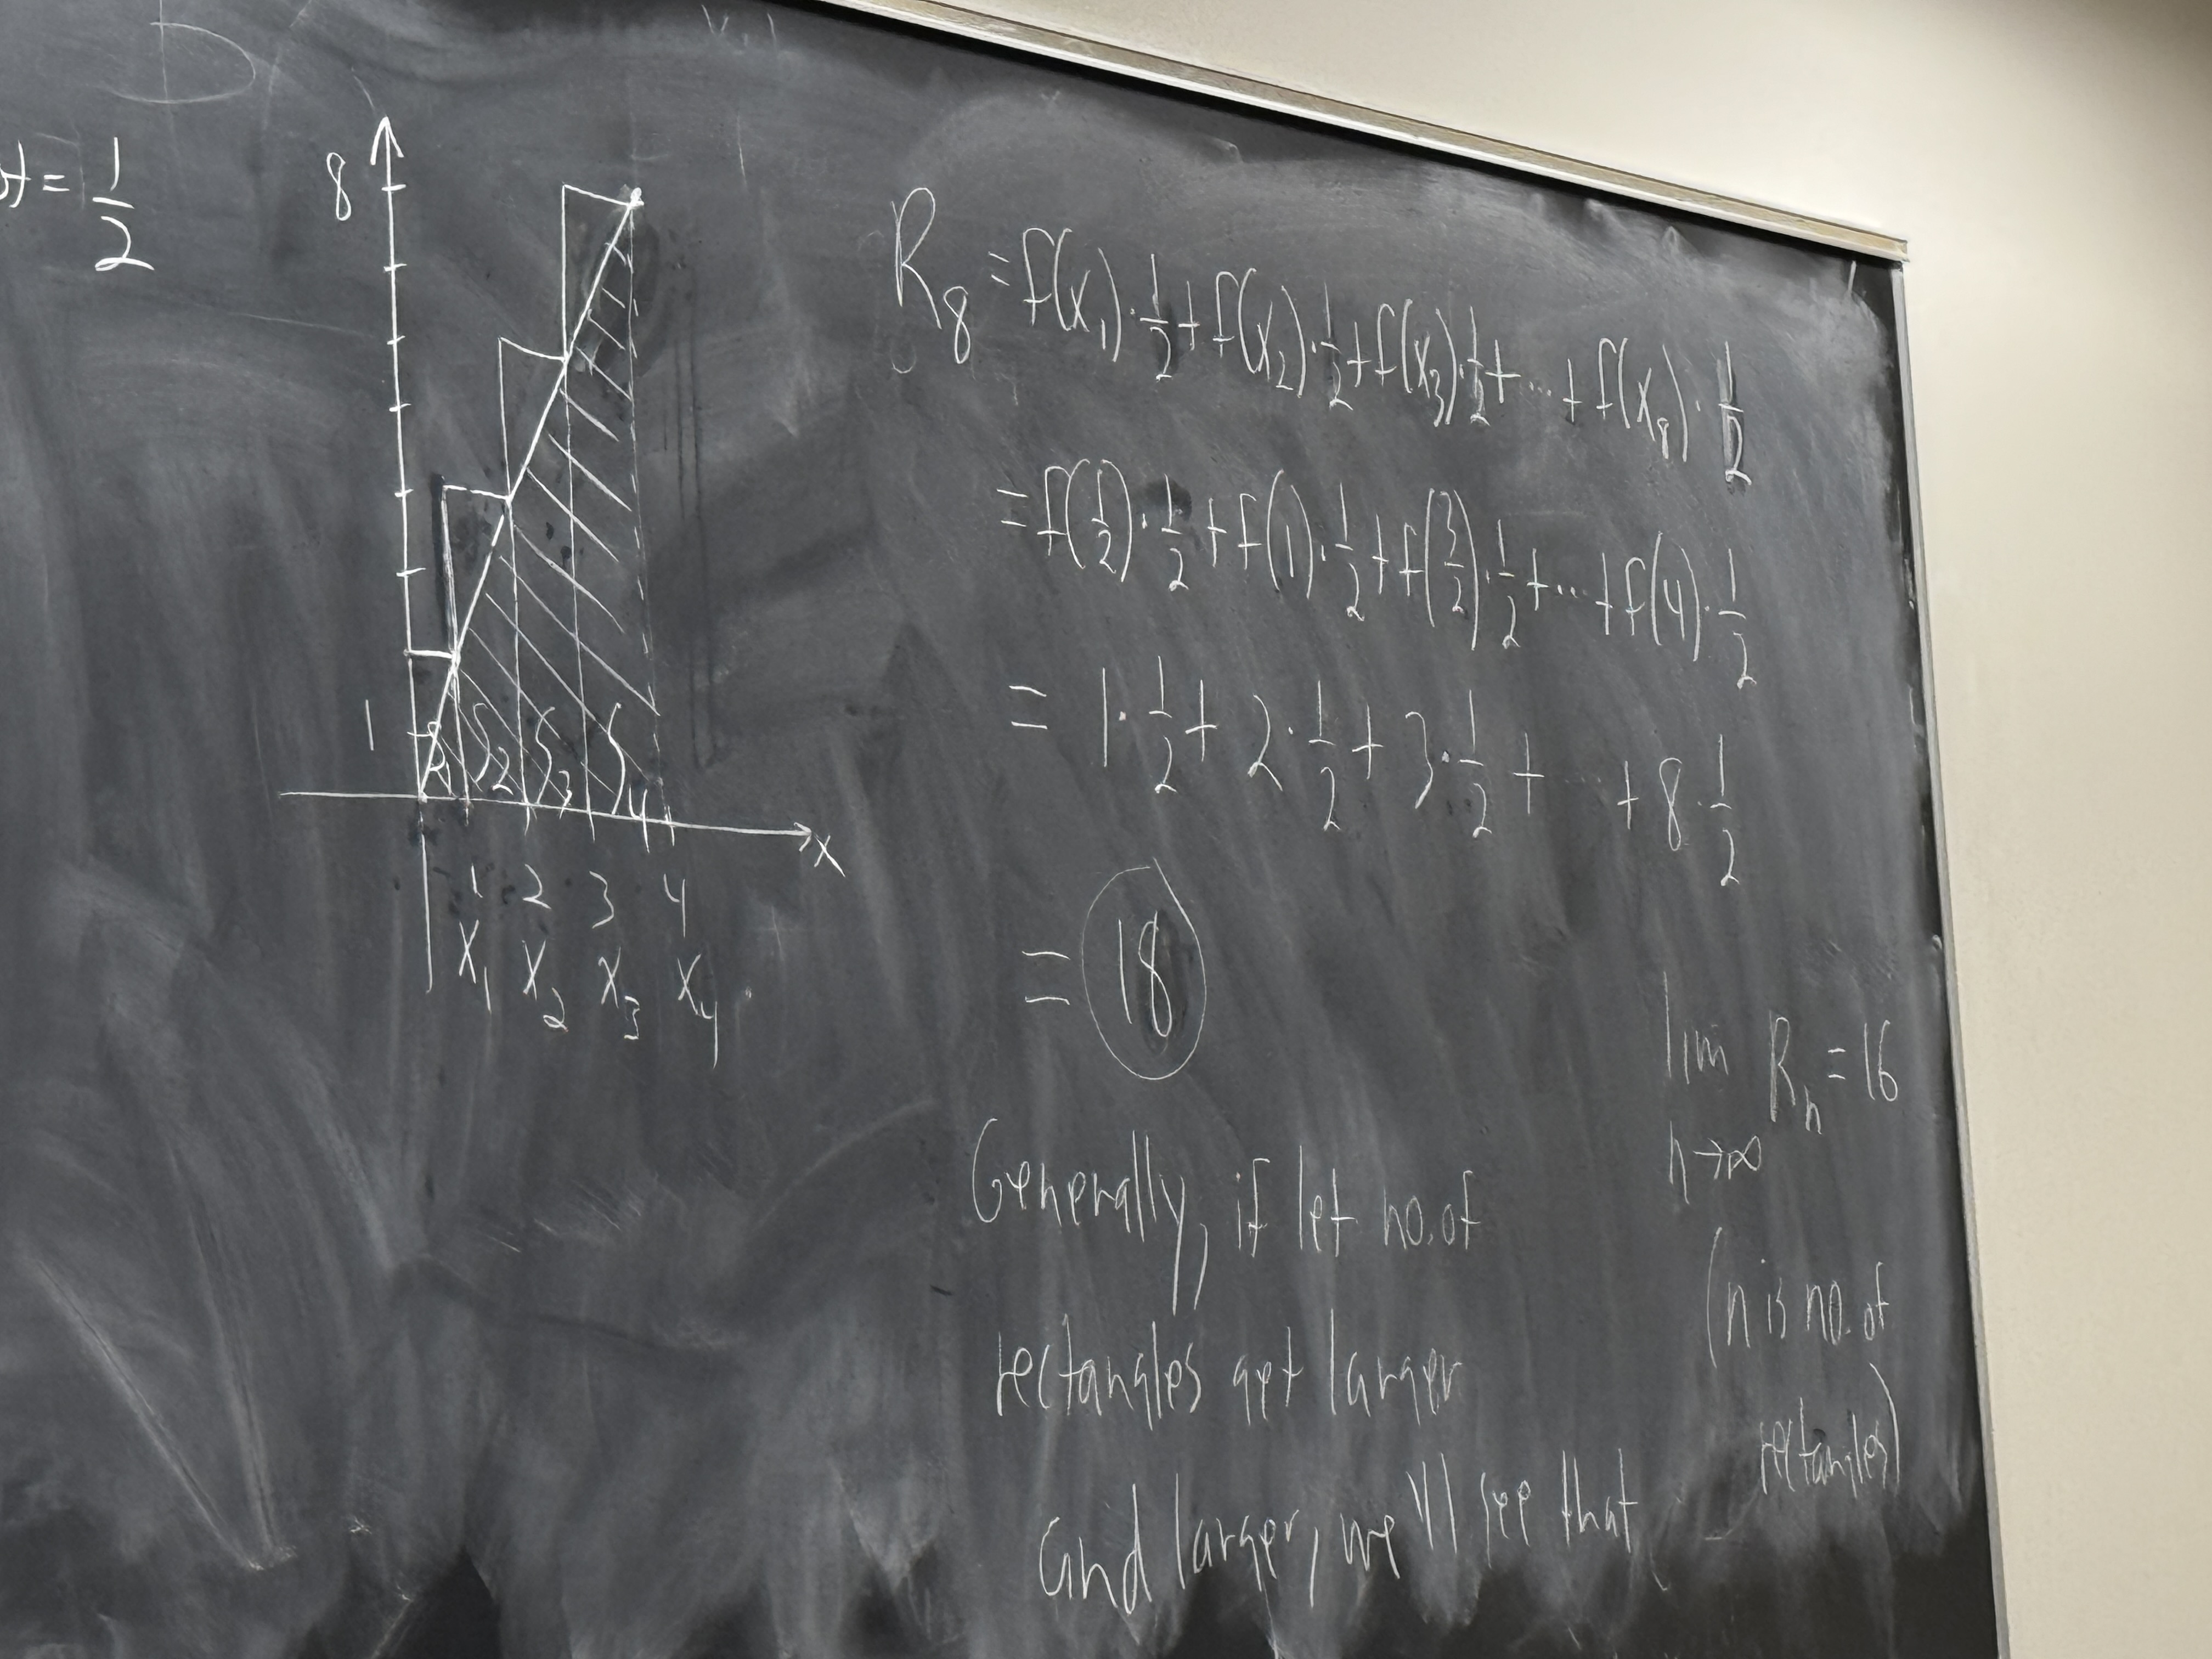 = 1/2
8
1
S₂ S₃ S₄
x
1 2 3 4
x₁ x₂ x₃ x₄
R₈ = f(x₁)·1/2 + f(x₂)·1/2 + f(x₃)·1/2 + ... + f(x₈)·1/2
= f(1/2)·1/2 + f(1)·1/2 + f(3/2)·1/2 + ... + f(4)·1/2
= 1·1/2 + 2·1/2 + 3·1/2 + ... + 8·1/2
= 18
Generally, if let no. of
rectangles get larger
and larger, we'll see that
lim Rₙ = 16
n→∞
(n is no. of
rectangles)